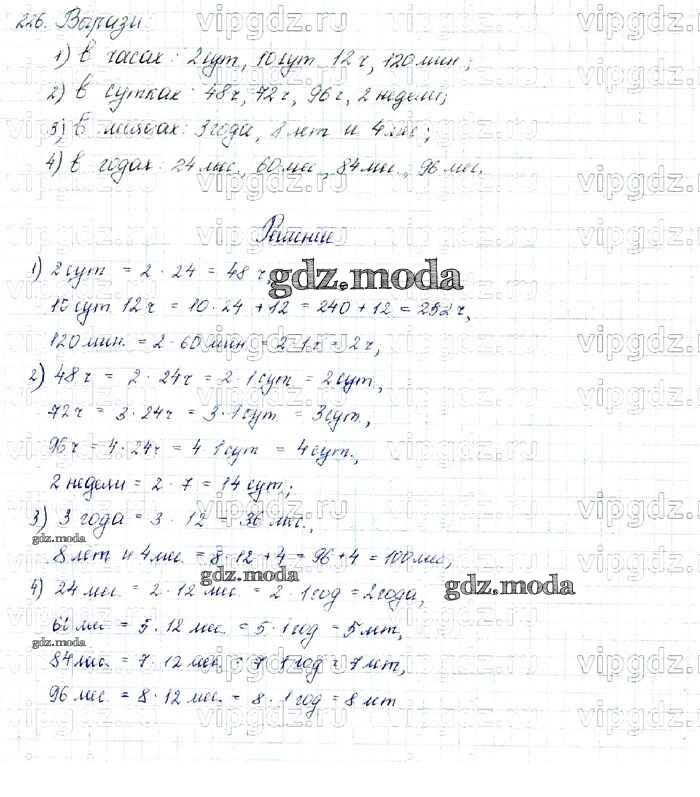 226. Вырази:
1) в часах: 2 сут, 10 сут 12 ч, 120 мин;
2) в сутках: 48 ч, 72 ч, 96 ч, 2 недели;
3) в месяцах: 3 года, 8 лет и 4 мес;
4) в годах: 24 мес., 60 мес., 84 мес., 96 мес.
Решение
1) 2 сут = 2 · 24 = 48 ч,
gdz.moda
10 сут 12 ч = 10 · 24 + 12 = 240 + 12 = 252 ч,
120 мин. = 2 · 60 мин = 2 · 1 ч = 2 ч,
2) 48 ч = 2 · 24 ч = 2 · 1 сут = 2 сут,
72 ч = 3 · 24 ч = 3 · 1 сут = 3 сут,
96 ч = 4 · 24 ч = 4 · 1 сут = 4 сут.,
2 недели = 2 · 7 = 14 сут;
3) 3 года = 3 · 12 = 36 мес.,
gdz.moda
8 лет и 4 мес = 8 · 12 + 4 = 96 + 4 = 100 мес,
gdz.moda
gdz.moda
4) 24 мес. = 2 · 12 мес. = 2 · 1 год = 2 года,
60 мес = 5 · 12 мес = 5 · 1 год = 5 лет,
gdz.moda
84 мес. = 7 · 12 мес. = 7 · 1 год = 7 лет,
96 мес. = 8 · 12 мес. = 8 · 1 год = 8 лет
vipgdz.ru
vipgdz.ru
vipgdz.ru
vipgdz.ru
vipgdz.ru
vipgdz.ru
vipgdz.ru
vipgdz.ru
vipgdz.ru
vipgdz.ru
vipgdz.ru
vipgdz.ru